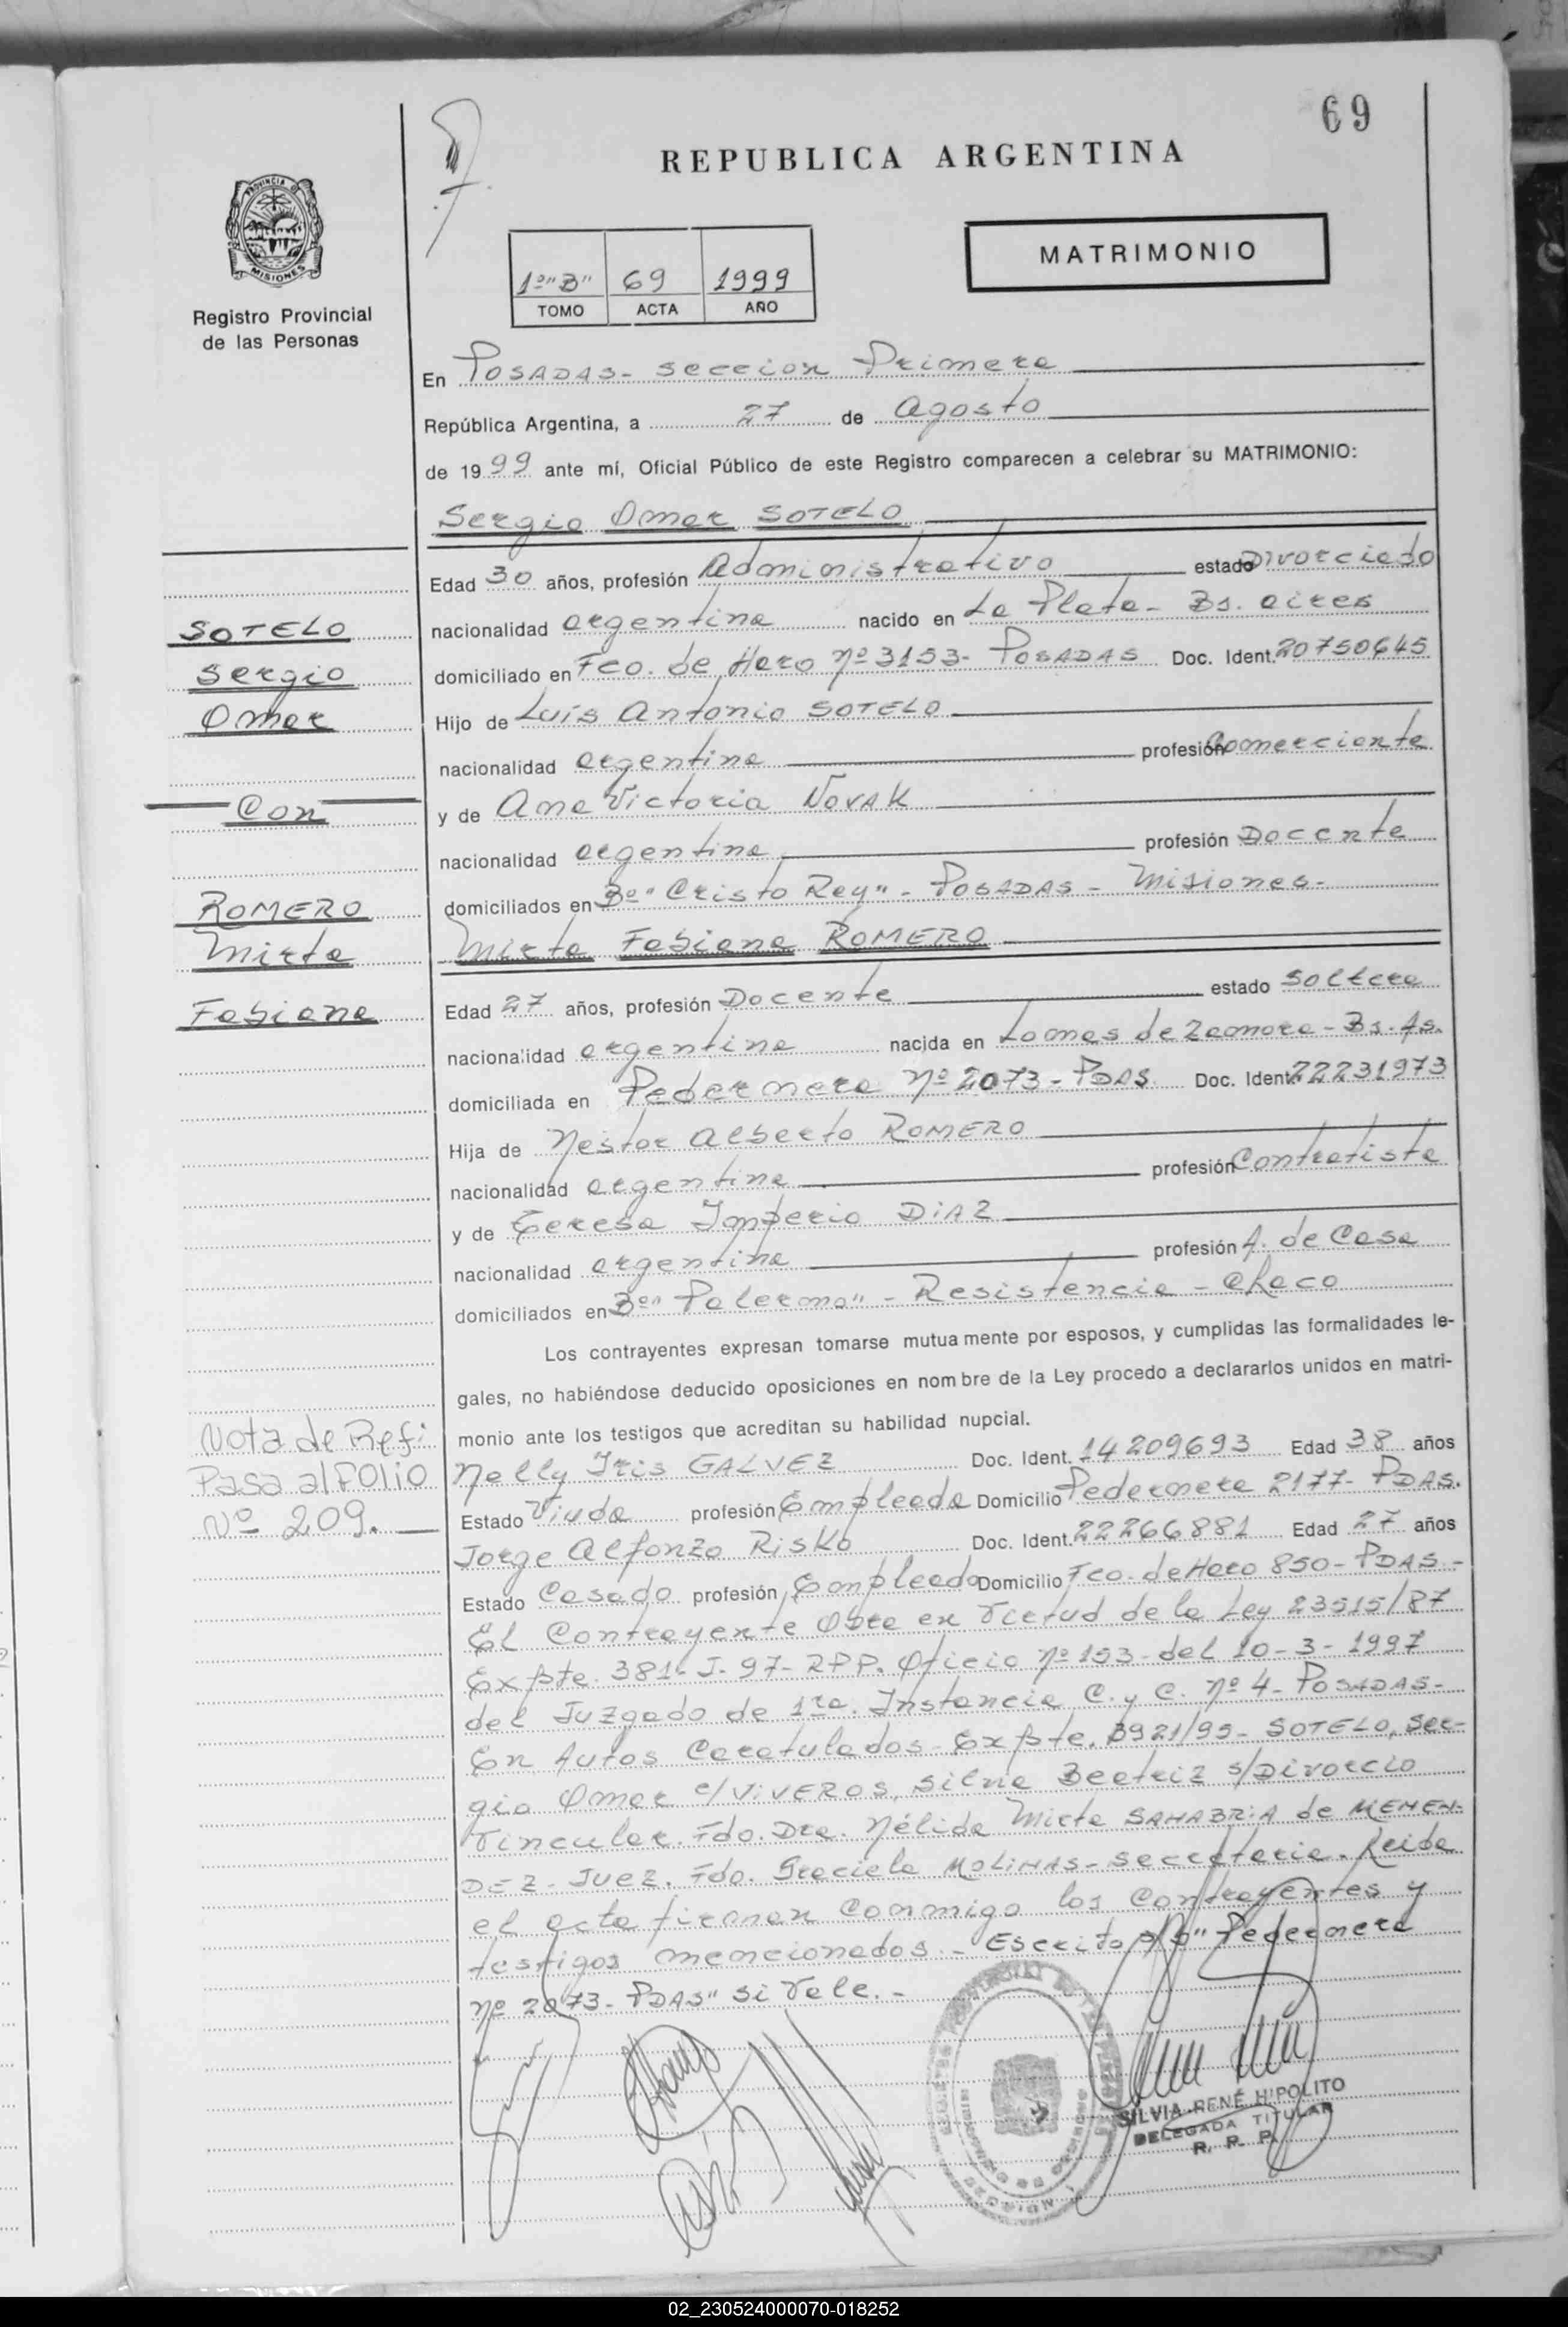 69
REPUBLICA ARGENTINA
PROVINCIA DE
MISIONES
Registro Provincial
de las Personas
1º "B" 69 1999
TOMO ACTA AÑO
MATRIMONIO
En Posadas- seccion Primera
República Argentina, a 27 de Agosto
de 1999 ante mí, Oficial Público de este Registro comparecen a celebrar su MATRIMONIO:
Sergio Omar SOTELO
Edad 30 años, profesión Administrativo estado Divorciado
nacionalidad argentina nacido en La Plata- Bs. aires
domiciliado en Fco. de Haro nº 3153- Posadas Doc. Ident. 20750645
Hijo de Luis Antonio SOTELO
nacionalidad argentina profesión Comerciante
y de Ana Victoria NOVAK
nacionalidad argentina profesión Docente
domiciliados en Bº "Cristo Rey" - Posadas - Misiones-
Mirta Fabiana ROMERO
Edad 27 años, profesión Docente estado Soltera
nacionalidad argentina nacida en Lomas de Zamora - Bs. As.
domiciliada en Pedernera nº 2073 - Pdas Doc. Ident. 22231973
Hija de Nestor Alberto ROMERO
nacionalidad argentina profesión Contratista
y de Teresa Imperio DIAZ
nacionalidad argentina profesión A. de Casa
domiciliados en Bº "Palermo" - Resistencia - Chaco
Los contrayentes expresan tomarse mutuamente por esposos, y cumplidas las formalidades le-
gales, no habiéndose deducido oposiciones en nombre de la Ley procedo a declararlos unidos en matri-
monio ante los testigos que acreditan su habilidad nupcial.
Nelly Iris GALVEZ Doc. Ident. 14209693 Edad 38 años
Estado Viuda profesión Empleada Domicilio Pedernera 2177- Pdas.
Jorge Alfonzo Risko Doc. Ident. 22266881 Edad 27 años
Estado Casado profesión Empleado Domicilio Fco. de Haro 850- Pdas.-
El Contrayente Obra en virtud de la Ley 23515/87
Expte. 381- J- 97- RPP. Oficio nº 153- del 10-3-1997
del Juzgado de 1ra. Instancia C. y C. nº 4- Posadas-
En Autos Caratulados- Expte. 3921/95- SOTELO, Ser-
gio Omar c/ VIVEROS, Silvia Beatriz s/Divorcio
Vincular. Fdo. Dra. Nélida Mirta SANABRIA de MENEN-
DEZ- Juez. Fdo. Graciela MOLINAS- secretaria. Leida
el acta firman conmigo los Contrayentes y
testigos mencionados.- Escrito s/b "Pedernera
nº 2073- Pdas" si vale.-
SOTELO
Sergio
Omar
Con
ROMERO
Mirta
Fabiana
Nota de Refi
Pasa al FOLIO
Nº 209.
SILVIA RENÉ HIPOLITO
DELEGADA TITULAR
R. P. P.
02_230524000070-018252